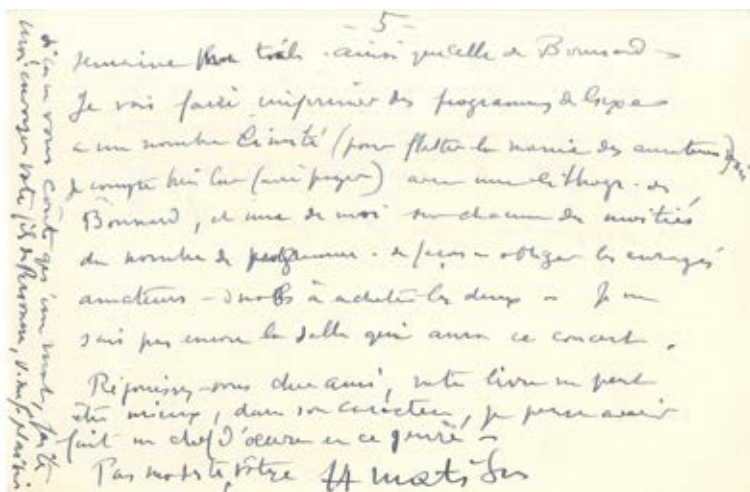 - 5 -
semaine plus tard - ainsi qu'elle de Bonnard -
Je vais faire imprimer des programmes de luxe
a un nombre limité (pour flatter la manie des amateurs) que
je compte bien (faire payer) avec une lithogr. de
Bonnard, et une de moi sur chacun des moitiés
du nombre de programme - de façon a obliger les enragés
amateurs - snobs à acheter les deux - Je ne
sais pas encore la salle qui aura ce concert.
Réjouissez-vous cher ami, votre livre ne peut
être mieux, dans son caractère, je pense avoir
fait un chef d'oeuvre en ce genre -
Pas modeste, vôtre H Matisse
si ça ne vous coûte qu'un mot, faite
moi envoyer votre